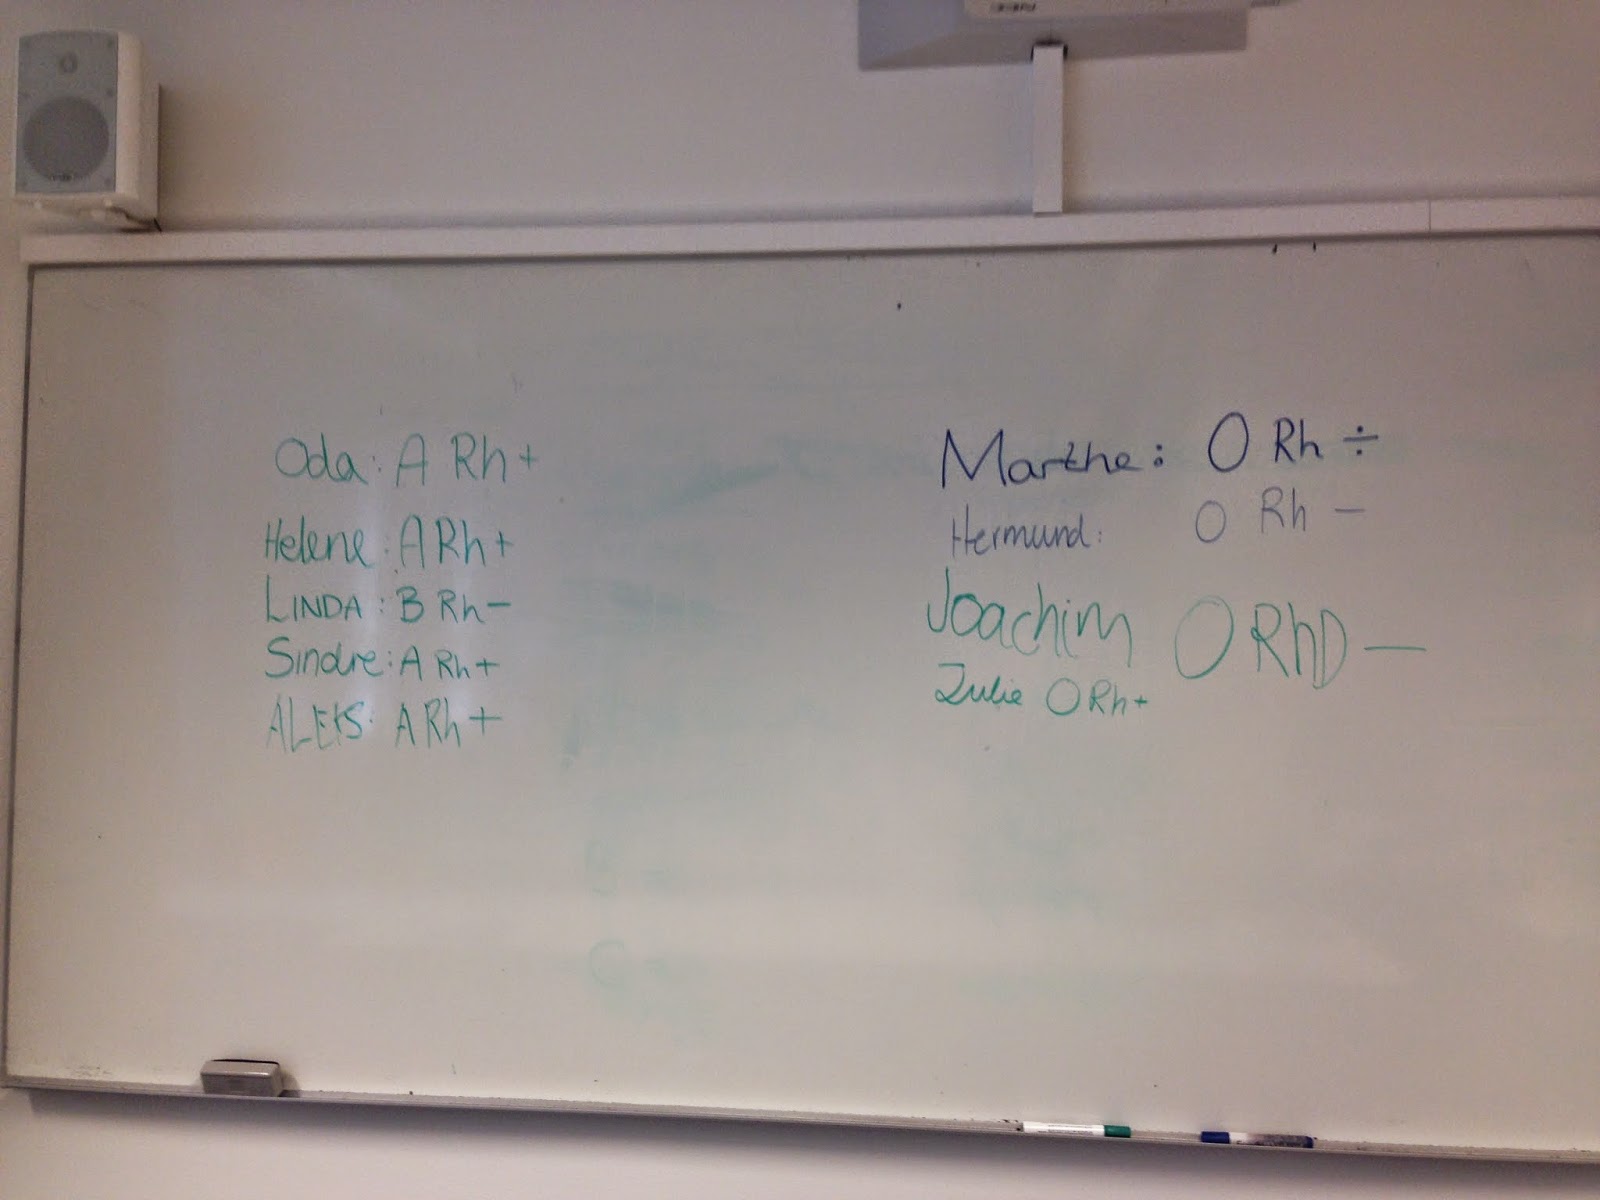 Oda: A Rh +
Helene: A Rh +
LINDA: B Rh -
Sindre: A Rh +
ALEKS: A Rh +
Marthe: O Rh ÷
Hermund: O Rh -
Joachim O RhD -
Julie O Rh +